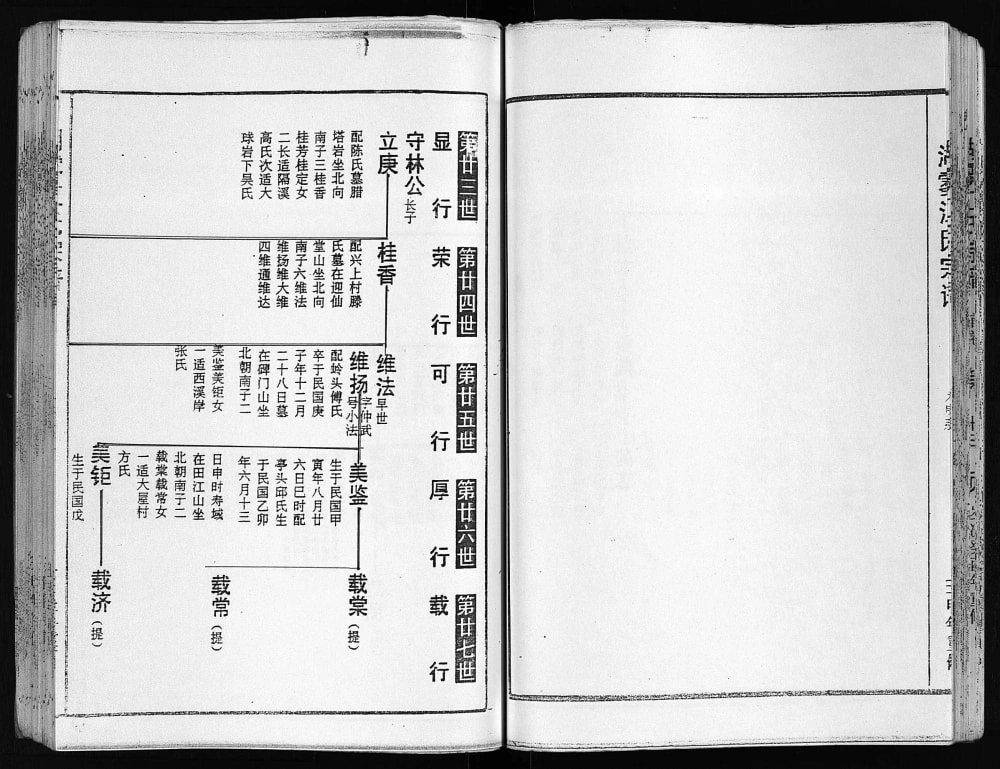 第廿三世
显行
第廿四世
荣行
第廿五世
可行
第廿六世
厚行
第廿七世
载行
守林公长子
立庚
配陈氏墓腊
塔岩坐北向
南子三桂香
桂芳桂定女
二长适隔溪
高氏次适大
球岩下吴氏
桂香
配兴上村滕
氏墓在迎仙
堂山坐北向
南子六维法
维扬维大维
四维通维达
维法早世
维扬字仲武
号小法
配岭头傅氏
卒于民国庚
子年十二月
二十八日墓
在碑门山坐
北朝南子二
美鉴美钜女
一适西溪岸
张氏
美鉴
生于民国甲
寅年八月廿
六日巳时配
亭头邱氏生
于民国乙卯
年六月十三
日申时寿域
在田江山坐
北朝南子二
载棠载常女
一适大屋村
方氏
载棠(提)
载常(提)
美钜
生于民国戊
载济(提)